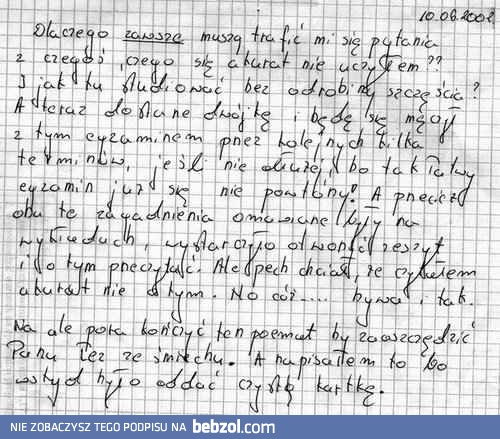 10.06.2008
Dlaczego zawsze muszą trafić mi się pytania
z czegoś, czego się akurat nie uczyłem??
I jak tu studiować bez odrobiny szczęścia?
A teraz dostanę dwójkę i będę się męczył
z tym egzaminem przez kolejnych kilka
terminów, jeśli nie dłużej, bo tak łatwy
egzamin już się nie powtórzy. A przecież
oba te zagadnienia omawiane były na
wykładach, wystarczyło otworzyć zeszyt
i o tym przeczytać. Ale pech chciał, że czytałem
akurat nie o tym. No cóż.... bywa i tak.
Na ale pora kończyć ten poemat by zaoszczędzić
Panu łez ze śmiechu. A napisałem to bo
wstyd było oddać czystą kartkę.
NIE ZOBACZYSZ TEGO PODPISU NA bebzol.com